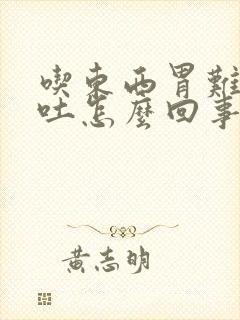 喫東西胃難
吐怎麼回事
黃志明